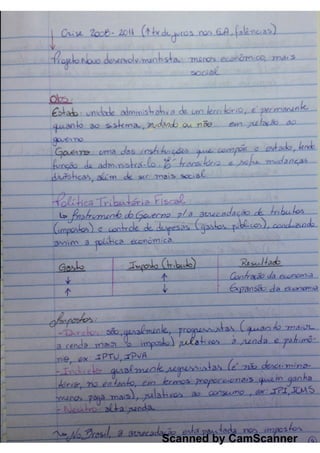 Crise 2008-2014 (↑tx de juros nos EUA, falências)
Projeto Novo desenvolvimentista menos econômico, mais
social
Obs:
Estado: unidade administrativa de um território, é permanente
quanto ao sistema, ou não em relação ao
governo
Governo uma das instituições que compõe o estado, tendo
função de administrá-lo. É transitório e sofre mudanças
, além de ser mais social
Política Tributária Fiscal
↳ Instrumento do Governo p/a arrecadação de tributos
(impostos) e controle de despesas (gastos públicos), conduzindo
assim a política econômica.
Gasto Imposto (tributo) Resultado
↓ ↑ Contração da economia
↑ ↓ Expansão da economia
Impostos:
- Direto: são, geralmente, progressivos (quanto maior
a renda maior o imposto) relativos à renda e patrimô-
nio, ex. IPTU, IPVA
- Indireto: geralmente regressivos (é não discrimina-
tório, no entanto, em termos proporcionais quem ganha
menos paga mais), relativos ao consumo, ex IPI, ICMS
- Neutro: alta renda
↳ No Brasil, a arrecadação está pautada nos impostos
Scanned by CamScanner